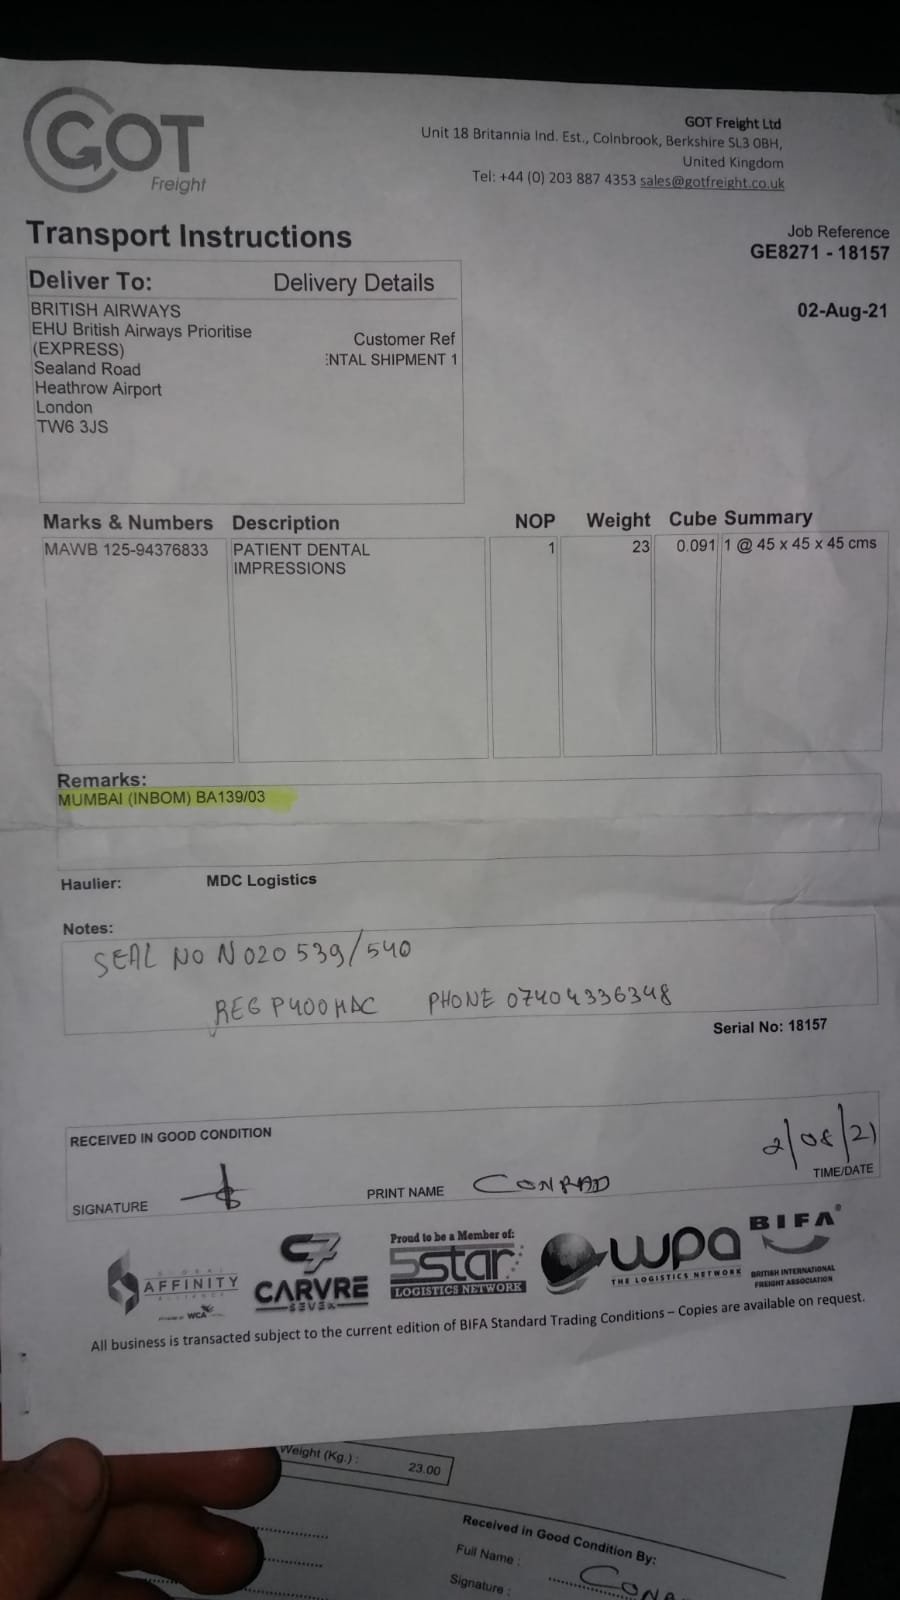 GOT
Freight
GOT Freight Ltd
Unit 18 Britannia Ind. Est., Colnbrook, Berkshire SL3 0BH,
United Kingdom
Tel: +44 (0) 203 887 4353 sales@gotfreight.co.uk
Transport Instructions
Job Reference
GE8271 - 18157
02-Aug-21
Deliver To: Delivery Details
BRITISH AIRWAYS
EHU British Airways Prioritise
(EXPRESS)
Sealand Road
Heathrow Airport
London
TW6 3JS
Customer Ref
ENTAL SHIPMENT 1
Marks & Numbers Description NOP Weight Cube Summary
MAWB 125-94376833 PATIENT DENTAL 1 23 0.091 1 @ 45 x 45 x 45 cms
IMPRESSIONS
Remarks:
MUMBAI (INBOM) BA139/03
Haulier: MDC Logistics
Notes:
SEAL NO N020 539/540
REG P400MAC PHONE 07404336348
Serial No: 18157
RECEIVED IN GOOD CONDITION
2/08/21
SIGNATURE PRINT NAME CONRAD TIME/DATE
GLOBAL
AFFINITY
ALLIANCE
WCA
C7
CARVRE
SEVEN
Proud to be a Member of:
5star
LOGISTICS NETWORK
wpa
THE LOGISTICS NETWORK
BIFA
BRITISH INTERNATIONAL
FREIGHT ASSOCIATION
All business is transacted subject to the current edition of BIFA Standard Trading Conditions – Copies are available on request.
Weight (Kg.) : 23.00
Received in Good Condition By:
Full Name :
Signature :